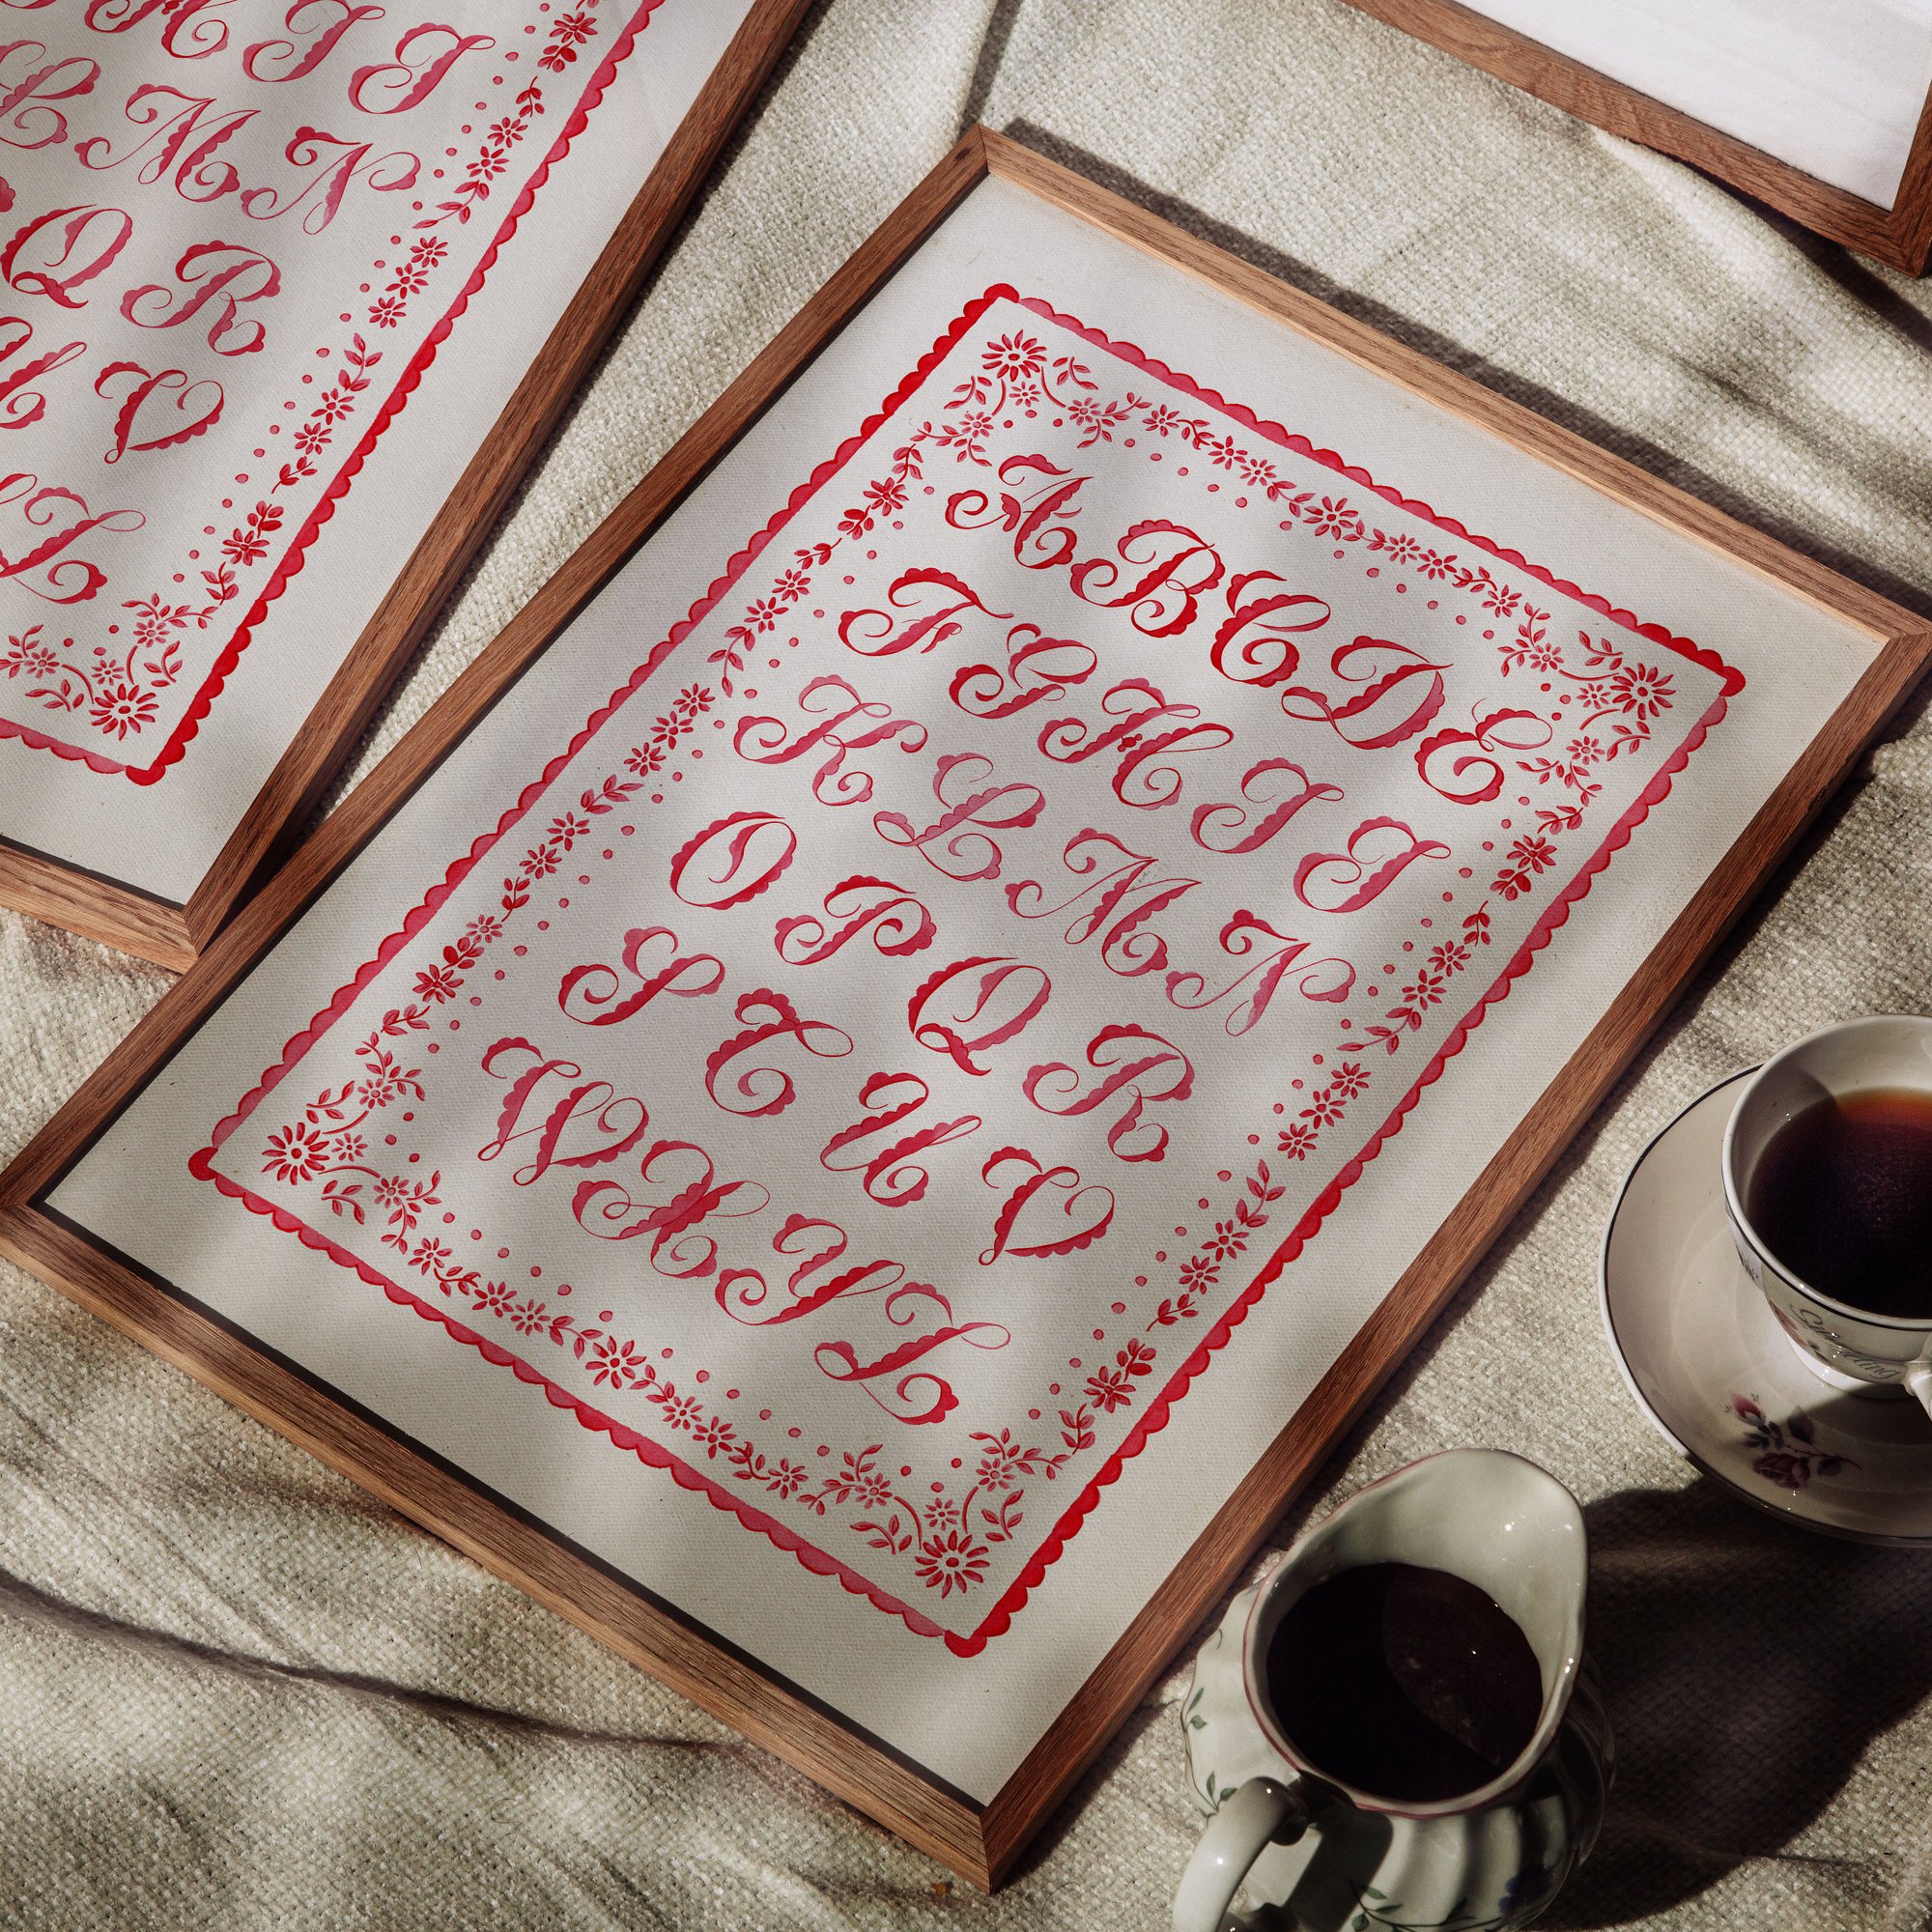 H I J
L M N
Q R
U V
Z
A B C D E
F G H I J
K L M N
O P Q R
S T U V
W X Y Z